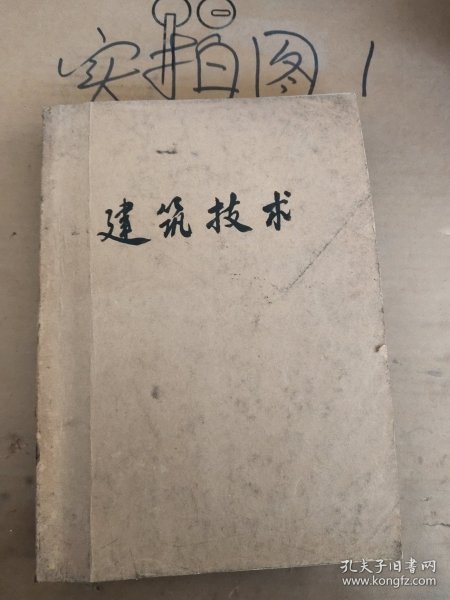 实拍图1
建筑技术
孔夫子旧书网
www.kongfz.com